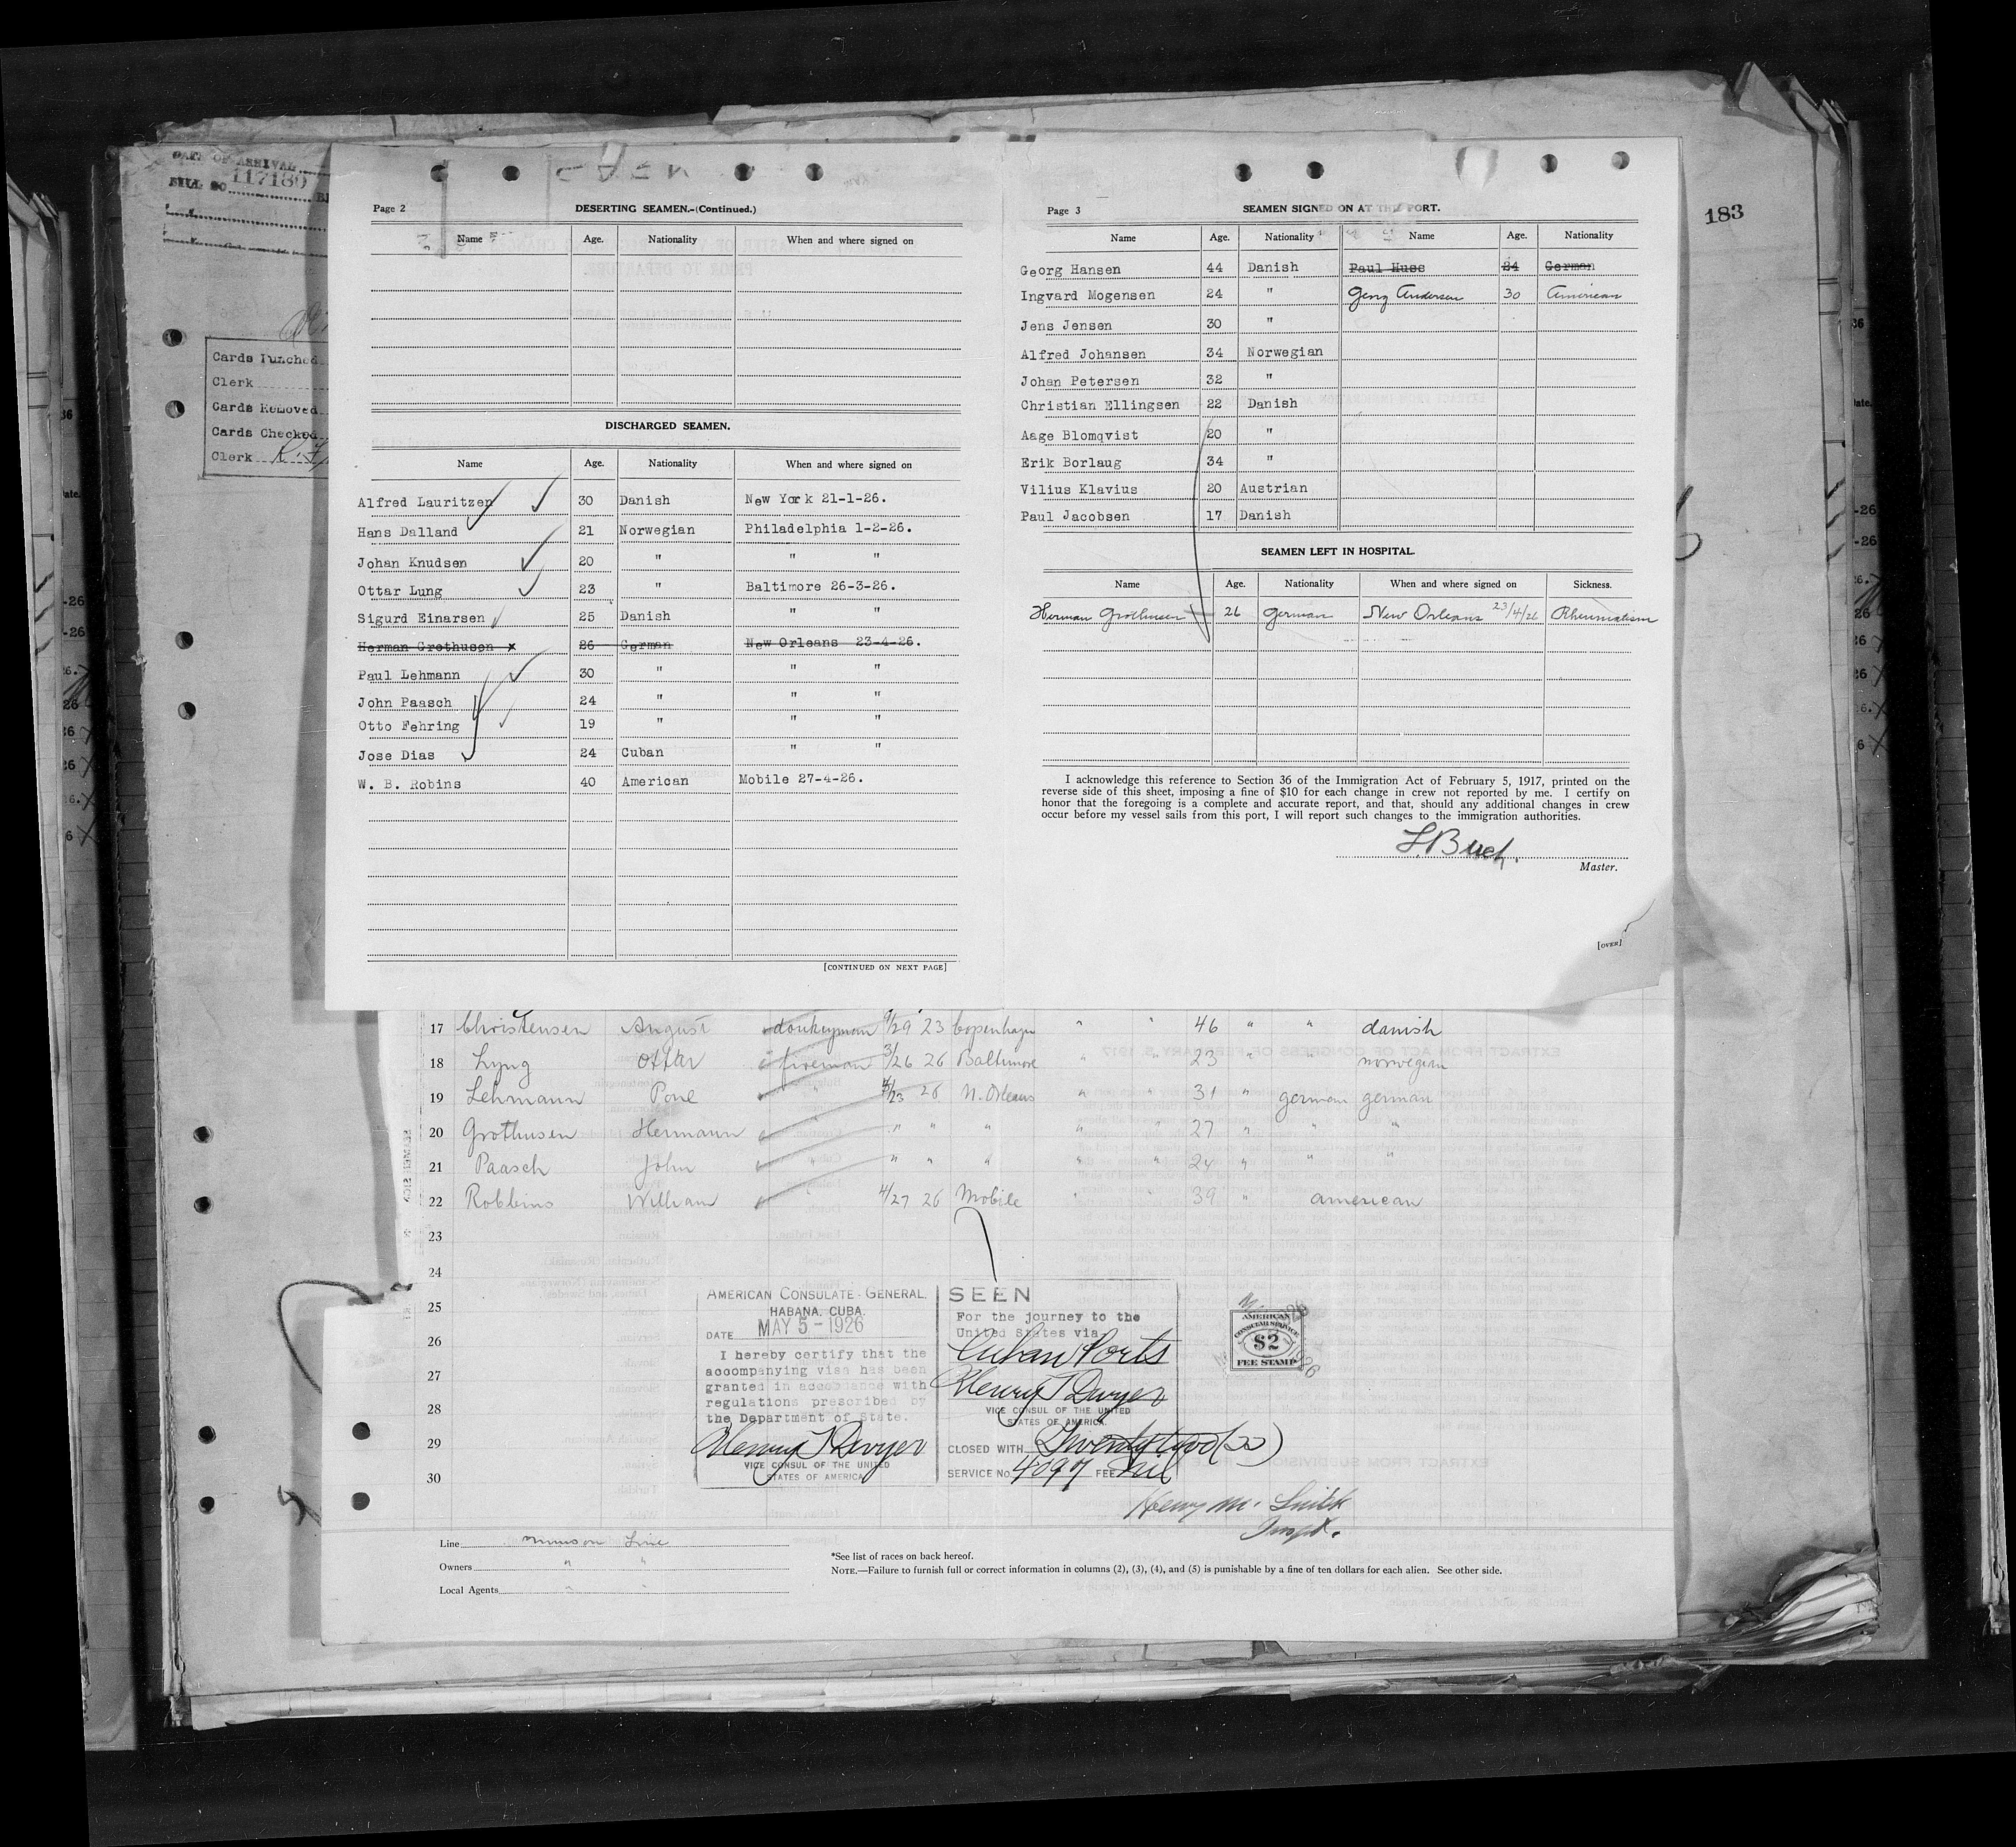 DATE OF ARRIVAL
BILL NO 117180
183
Cards Punched
Clerk
Cards Removed
Cards Checked
Clerk
Page 2 DESERTING SEAMEN.-(Continued.)
Name Age. Nationality When and where signed on
DISCHARGED SEAMEN.
Name Age. Nationality When and where signed on
Alfred Lauritzen 30 Danish New York 21-1-26.
Hans Dalland 21 Norwegian Philadelphia 1-2-26.
Johan Knudsen 20 " " "
Ottar Lung 23 " Baltimore 26-3-26.
Sigurd Einarsen 25 Danish " "
Herman Grothusen x 26 German New Orleans 23-4-26.
Paul Lehmann 30 " " "
John Paasch 24 " " "
Otto Fehring 19 " " "
Jose Dias 24 Cuban " "
W. B. Robins 40 American Mobile 27-4-26.
[CONTINUED ON NEXT PAGE]
Page 3 SEAMEN SIGNED ON AT THIS PORT.
Name Age. Nationality Name Age. Nationality
Georg Hansen 44 Danish Paul Huss 24 German
Ingvard Mogensen 24 " Georg Andersen 30 American
Jens Jensen 30 "
Alfred Johansen 34 Norwegian
Johan Petersen 32 "
Christian Ellingsen 22 Danish
Aage Blomqvist 20 "
Erik Borlaug 34 "
Vilius Klavius 20 Austrian
Paul Jacobsen 17 Danish
SEAMEN LEFT IN HOSPITAL.
Name Age. Nationality When and where signed on Sickness.
Herman Grothusen 26 German New Orleans 23/4/26 Rheumatism
I acknowledge this reference to Section 36 of the Immigration Act of February 5, 1917, printed on the
reverse side of this sheet, imposing a fine of $10 for each change in crew not reported by me. I certify on
honor that the foregoing is a complete and accurate report, and that, should any additional changes in crew
occur before my vessel sails from this port, I will report such changes to the immigration authorities.
Master.
[OVER]
17 Christensen August donkeyman 9/29 23 Copenhagen " " 46 " " danish
18 Lyng Ottar fireman 3/26 26 Baltimore " " 23 " " norwegian
19 Lehmann Pone " 4/23 26 N. Orleans " " 31 " german german
20 Grothusen Hermann " " " " " " 27 " " "
21 Paasch John " " " " " " 24 " " "
22 Robbins William " 4/27 26 Mobile " " 39 " american
23
24
25
26
27
28
29
30
AMERICAN CONSULATE-GENERAL,
HABANA, CUBA.
DATE MAY 5-1926
I hereby certify that the
accompanying visa has been
granted in accordance with
regulations prescribed by
the Department of State.
Henry T Dwyer
VICE CONSUL OF THE UNITED
STATES OF AMERICA
SEEN
For the journey to the
United States via
Cuban Ports
Henry T Dwyer
VICE CONSUL OF THE UNITED
STATES OF AMERICA.
CLOSED WITH Twenty two (22)
SERVICE No. 4097 FEE Nil
AMERICAN
CONSULAR SERVICE
$2
FEE STAMP
Henry M. Smith
Inspt.
Line Munson Line
Owners " "
Local Agents " "
*See list of races on back hereof.
NOTE.—Failure to furnish full or correct information in columns (2), (3), (4), and (5) is punishable by a fine of ten dollars for each alien. See other side.